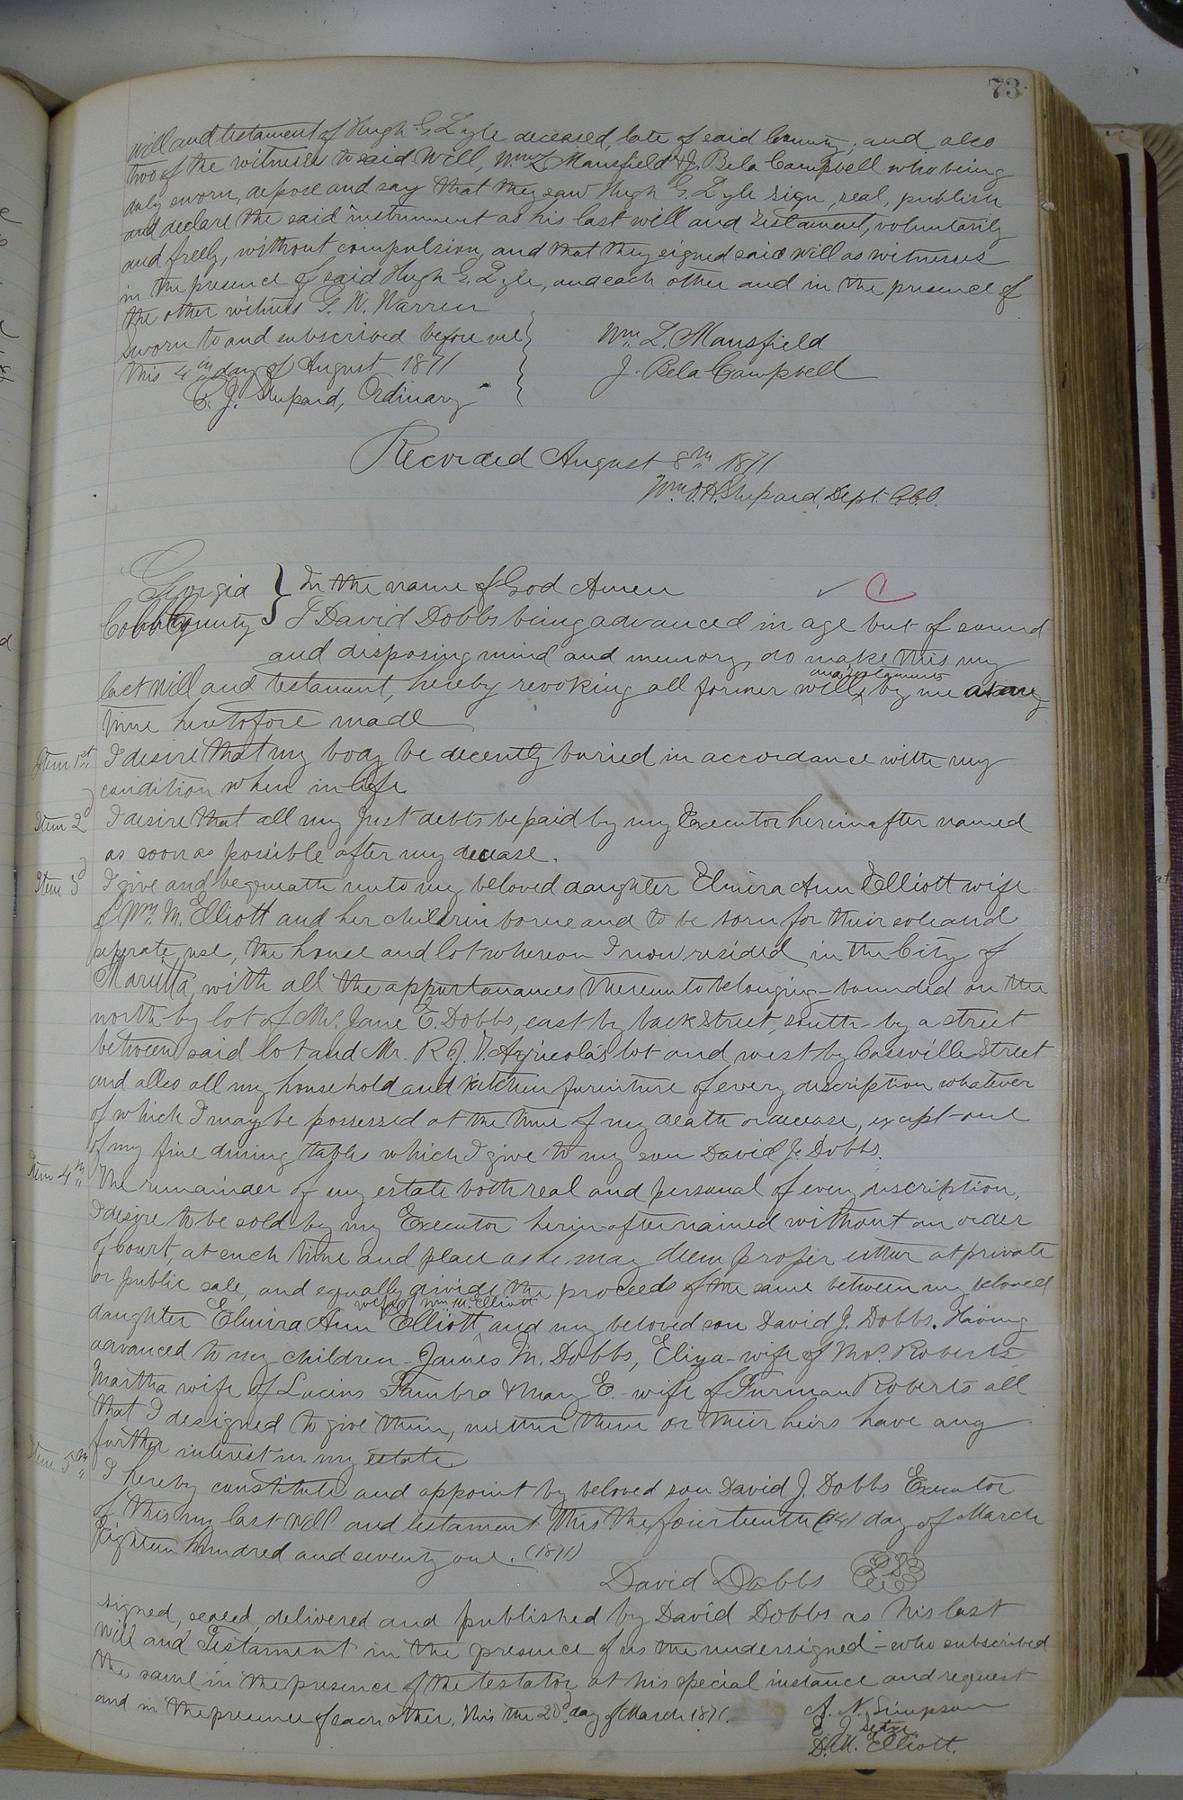 73
will and testament of Hugh G. Lyle deceased, late of said County; and also
two of the witnesses to said Will, Wm L Mansfield & J. Bela Campbell who being
duly sworn, depose and say that they saw Hugh G. Lyle sign, seal, publish
and declare the said instrument as his last will and testament, voluntarily
and freely, without compulsion, and that they signed said will as witnesses
in the presence of said Hugh G. Lyle, and each other and in the presence of
the other witness G. W. Warren
sworn to and subscribed before me
this 4th day of August 1871
C. J. Shepard, Ordinary
Wm L. Mansfield
J. Bela Campbell
Recorded August 8th 1871
Wm O. H. Shepard, Dept. C.C.O.
Georgia } In the name of God Amen
Cobb County } I David Dobbs being advanced in age but of sound
and disposing mind and memory, do make this my
last Will and testament, hereby revoking all former wills and testaments by me at any
time heretofore made
Item 1st I desire that my body be decently buried in accordance with my
condition when in life
Item 2d I desire that all my just debts be paid by my Executor hereinafter named
as soon as possible after my decease.
Item 3d I give and bequeath unto my beloved daughter Elmira Ann Elliott wife
of Wm. M. Elliott and her children borne and to be born for their sole and
seperate use, the house and lot whereon I now resided in the City of
Marietta, with all the appurtanances thereunto belonging - bounded on the
north by lot of Mrs. Jane E. Dobbs, east by back street, south by a street
between said lot and Mr. R. J. T. Agricola's lot and west by Cassville Street
and allso all my household and kitchen furniture of every discription whatever
of which I may be possessed at the time of my death or decease, except one
of my fine dining tables which I give to my son David J. Dobbs.
Item 4th The remainder of my estate both real and personal of every discription,
I desire to be sold by my Executor herinafter named without an order
of court, at such time and place as he may deem proper either at private
or public sale, and equally divide the proceeds of the same between my beloved
daughter Elmira Ann Elliott wife of Wm. M. Elliott and my beloved son David J. Dobbs. Having
advanced to my children James M. Dobbs, Eliza wife of Thos. Roberts
Martha wife of Lucius & Mary E. wife of Furman Roberts all
that I designed to give them, neither them or their heirs have any
further interest in my estate
Item 5th I hereby constitute and appoint by beloved son David J. Dobbs Executor
of this my last Will and testament this the fourteenth (14) day of March
Eighteen hundred and seventy one. (1871)
David Dobbs LS
signed, sealed, delivered and published by David Dobbs as his last
will and Testament in the presence of us the undersigned - who subscribed
the same in the presence of the testator at his special instance and request
and in the presence of each other, this the 20d day of March 1871.
A. N. Simpson
E. J. Setze
D. M. Elliott.